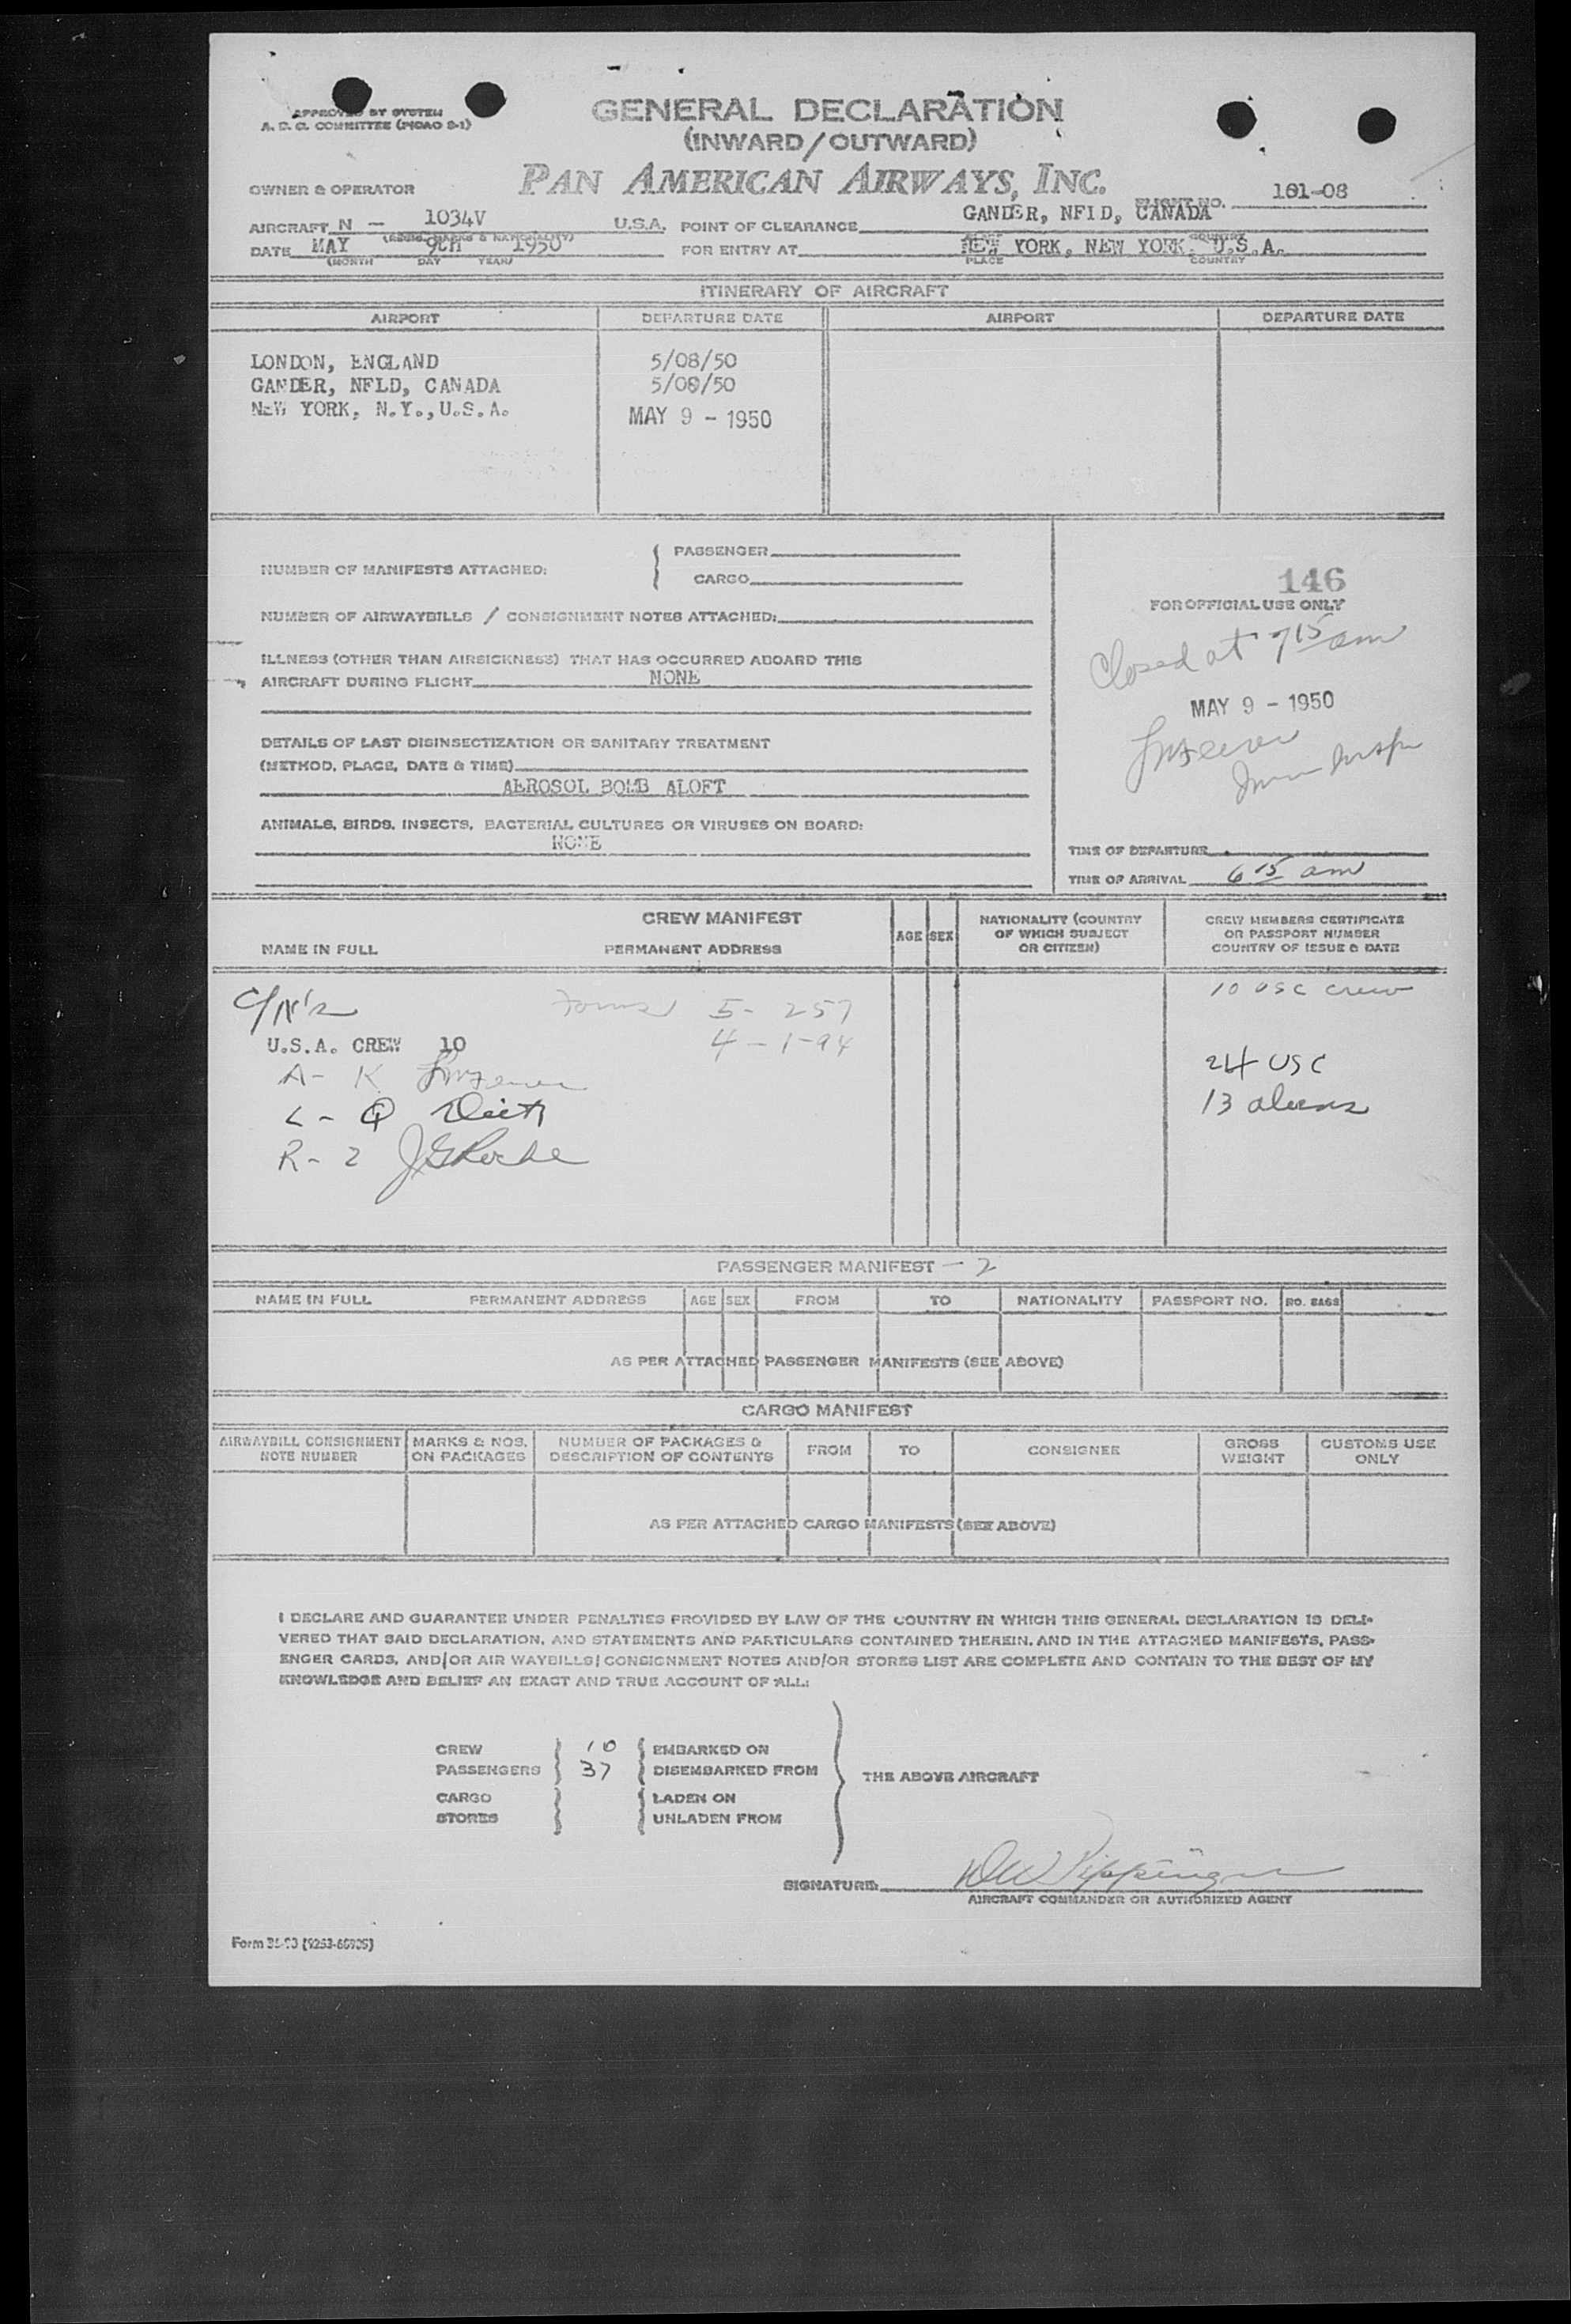 APPROVED BY SYSTEM
A. D. C. COMMITTEE (PICAO S-1)
GENERAL DECLARATION
(INWARD/OUTWARD)
OWNER & OPERATOR
PAN AMERICAN AIRWAYS, INC.
FLIGHT NO. 101-08
AIRCRAFT N - 1034V U.S.A. POINT OF CLEARANCE GANDER, NFLD, CANADA
(REGIS. MARKS & NATIONALITY) COUNTRY
DATE MAY 9th 1950 FOR ENTRY AT NEW YORK, NEW YORK. U.S.A.
(MONTH DAY YEAR) PLACE COUNTRY
ITINERARY OF AIRCRAFT
AIRPORT DEPARTURE DATE AIRPORT DEPARTURE DATE
LONDON, ENGLAND 5/08/50
GANDER, NFLD, CANADA 5/09/50
NEW YORK, N.Y., U.S.A. MAY 9 - 1950
NUMBER OF MANIFESTS ATTACHED: PASSENGER
CARGO
146
FOR OFFICIAL USE ONLY
NUMBER OF AIRWAYBILLS / CONSIGNMENT NOTES ATTACHED:
Closed at 7 15 am
ILLNESS (OTHER THAN AIRSICKNESS) THAT HAS OCCURRED ABOARD THIS
AIRCRAFT DURING FLIGHT NONE
MAY 9 - 1950
DETAILS OF LAST DISINSECTIZATION OR SANITARY TREATMENT
(METHOD, PLACE, DATE & TIME)
AEROSOL BOMB ALOFT
ANIMALS, BIRDS, INSECTS, BACTERIAL CULTURES OR VIRUSES ON BOARD:
NONE
TIME OF DEPARTURE
TIME OF ARRIVAL 6 15 am
CREW MANIFEST
NAME IN FULL PERMANENT ADDRESS AGE SEX NATIONALITY (COUNTRY OF WHICH SUBJECT OR CITIZEN) CREW MEMBERS CERTIFICATE OR PASSPORT NUMBER COUNTRY OF ISSUE & DATE
10 USC crew
5 - 257
U.S.A. CREW 10 4 - 1-94
A - K
24 USC
L - Q
13 aliens
R - Z J G Roche
PASSENGER MANIFEST - 2
NAME IN FULL PERMANENT ADDRESS AGE SEX FROM TO NATIONALITY PASSPORT NO. NO. BAGS
AS PER ATTACHED PASSENGER MANIFESTS (SEE ABOVE)
CARGO MANIFEST
AIRWAYBILL CONSIGNMENT NOTE NUMBER MARKS & NOS. ON PACKAGES NUMBER OF PACKAGES & DESCRIPTION OF CONTENTS FROM TO CONSIGNEE GROSS WEIGHT CUSTOMS USE ONLY
AS PER ATTACHED CARGO MANIFESTS (SEE ABOVE)
I DECLARE AND GUARANTEE UNDER PENALTIES PROVIDED BY LAW OF THE COUNTRY IN WHICH THIS GENERAL DECLARATION IS DELI-
VERED THAT SAID DECLARATION, AND STATEMENTS AND PARTICULARS CONTAINED THEREIN, AND IN THE ATTACHED MANIFESTS, PASS-
ENGER CARDS, AND/OR AIR WAYBILLS/ CONSIGNMENT NOTES AND/OR STORES LIST ARE COMPLETE AND CONTAIN TO THE BEST OF MY
KNOWLEDGE AND BELIEF AN EXACT AND TRUE ACCOUNT OF ALL:
CREW 10 EMBARKED ON
PASSENGERS 37 DISEMBARKED FROM
THE ABOVE AIRCRAFT
CARGO LADEN ON
STORES UNLADEN FROM
SIGNATURE DW Pippinger
AIRCRAFT COMMANDER OR AUTHORIZED AGENT